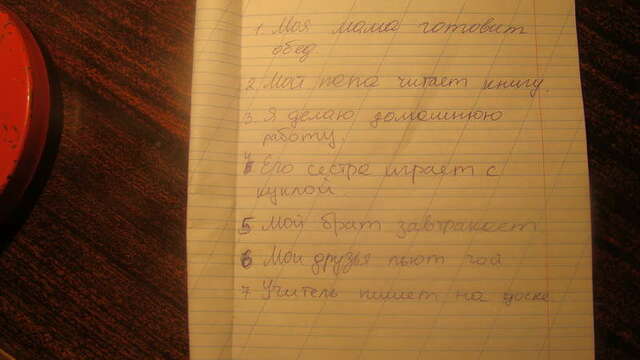 1. Моя мама готовит
обед
2. Мой папа читает книгу.
3. Я делаю домашнюю
работу.
4 Его сестра играет с
куклой
5 Мой брат завтракает
6 Мои друзья пьют чай
7 Учитель пишет на доске